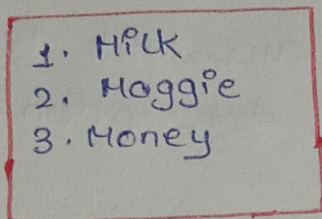 1. Milk
2. Maggie
3. Money